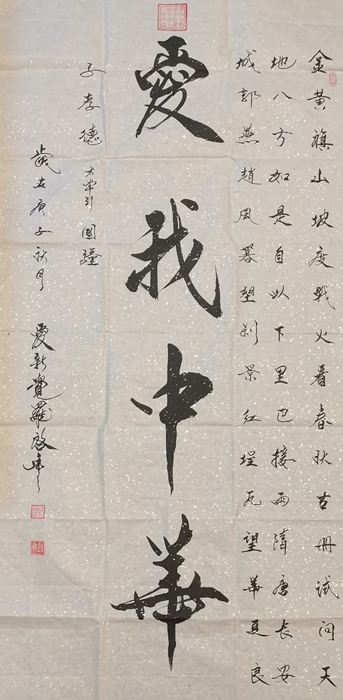 金黄旗山坡度戰火看春秋古册試问天
地八方如是自以下里巴接西隋唐长安
城郭燕趙风墓塑刹景红埕瓦望華夏良
愛我中華
子孝德 太常引 國
歲在庚子秋月 愛新覺羅啟